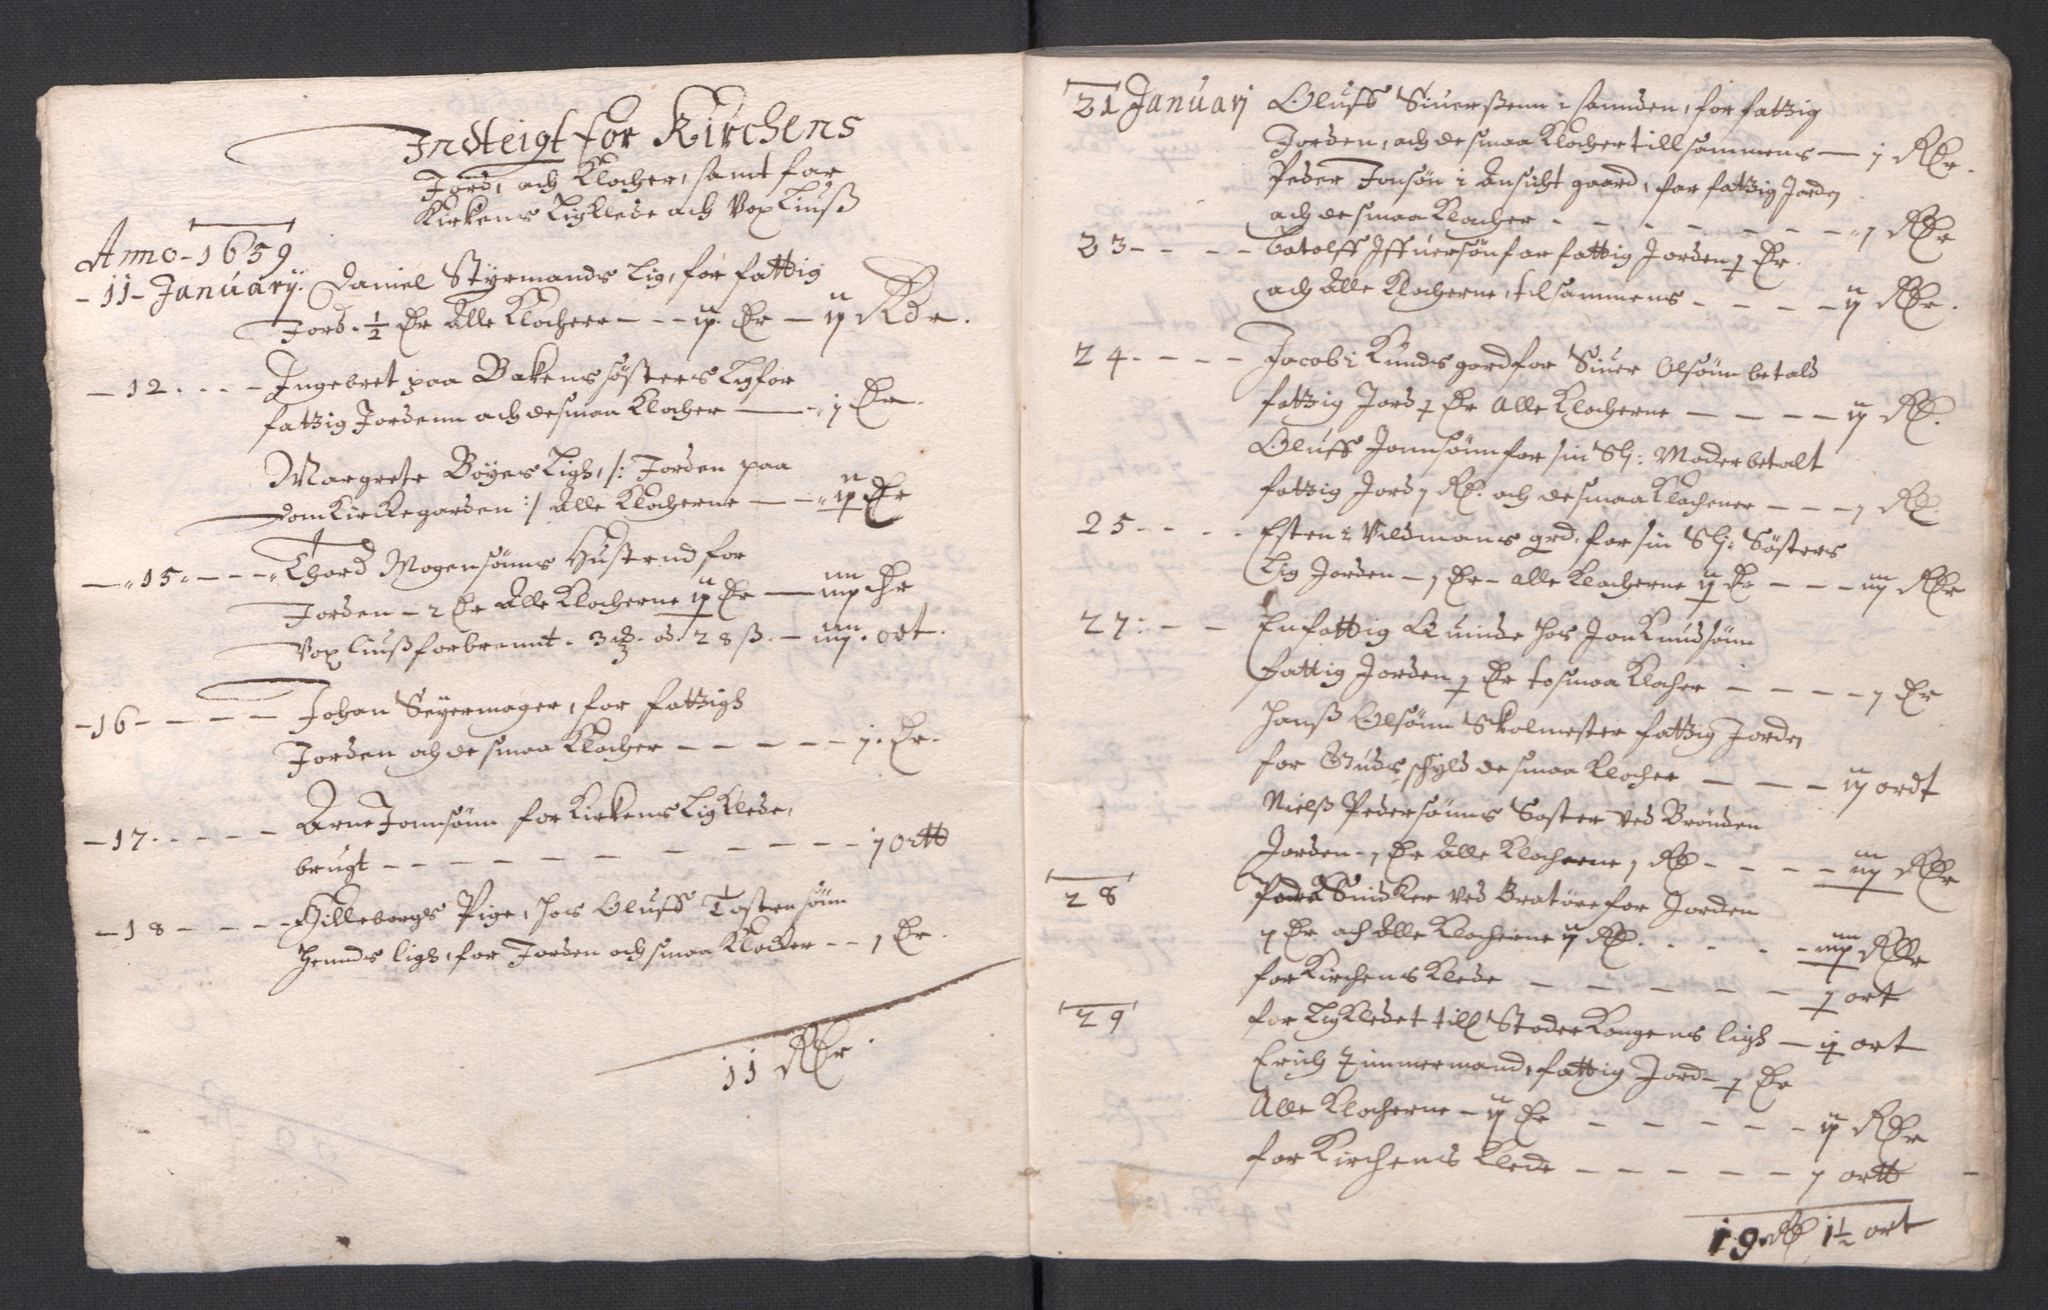 Indteigt for Kirchens
Jord, och Klocher, samt for
Kirkens Ligklede och Vox Liuß
Anno - 1659
- 11 - Januarij. Daniel Styrmands Lig, for fattig
Jord. ½ Dr Alle Klocher - - - Dr - ij Rdr.
- 12 . - - - Ingebret paa Bakens søsters Lig for
fattig Jordenn och de smaa Klocher - j Dr.
Margrete Böyes Ligh, /: Jorden paa
domkirckegarden :/ Alle Klocherne - - Dr
- 15 - - - Thord Mogensønns Hustrud for
Jorden - 2 Dr Alle Klocherne ij Dr - iiij Dr
Vox liuß forbrennt. 3 od. 28 ß. - ort.
- 16 - - - - - Johan Seyermager, for fattigh
Jorden och de smaa Klocher - - - - - j. Dr.
- 17. - - - - Arne Jonnsønn for Kirkens Lig Klede,
brugt - - - - - - - - - - - j ortt
- 18 - - - - Hilleborgs Pige, hos Oluff Tostensønn
hennds ligh, for Jorden och smaa Klocker - - j Dr.
11 Rdr.
21 Januarj Oluff Siuerßenn i sannden, for fattig
Jorden, och de smaa Klocher till sammens - j Rdr.
Peder Jonsøn i gaard, for fattig Jorden
och de smaa Klocher - - - - - - - - j Rdr
23 - - - - Batolff Iffuersøn for fattig Jorden j Dr.
och Alle Klocherne, til sammens - - - - Rdr.
24. - - - - Jacob i Kunds gord for Siuer Olsønn betald
fattig Jord j Dr Alle Klocherne - - - - Rd.
Oluff Jonnsønn for sin Slj: Moder betalt
fattig Jord j Rd. och de smaa Klochener - - - j Rd.
25 - - - - Esten i Vildmans grd. for sin Slj: Søsters
Lig Jorden - j Dr - alle Klocherne ij Dr - - - iij Rdr
27: - - En fattig Quinde hos Jon Knudsønn
fattig Jorden j Dr to smaa Klocher - - - - - j Dr
Hanß Olsønn Skolmester fattig Jorden
for Guds schyld de smaa Klocher - - - - ij ordt
Nielß Pedersønns Søster ved Brønden
Jorden - j Dr Alle Klocherne j Rd - - - - iij Rdr
28 Peder Snidker ved Bratøre for Jorden
j Dr och Alle Klocherne ij Rd. - - - - - Rdr
for Kirchens Klede - - - - - - j ort
29 for Lig Kledet till Stoder Kongens ligh - ort
Erich Timmermand, fattig Jord - j Dr
Alle Klocherne - ij Dr - - - - - - ij Rdr
for Kirchens Klede - - - - - - j ortt
19 Rd 1½ ort